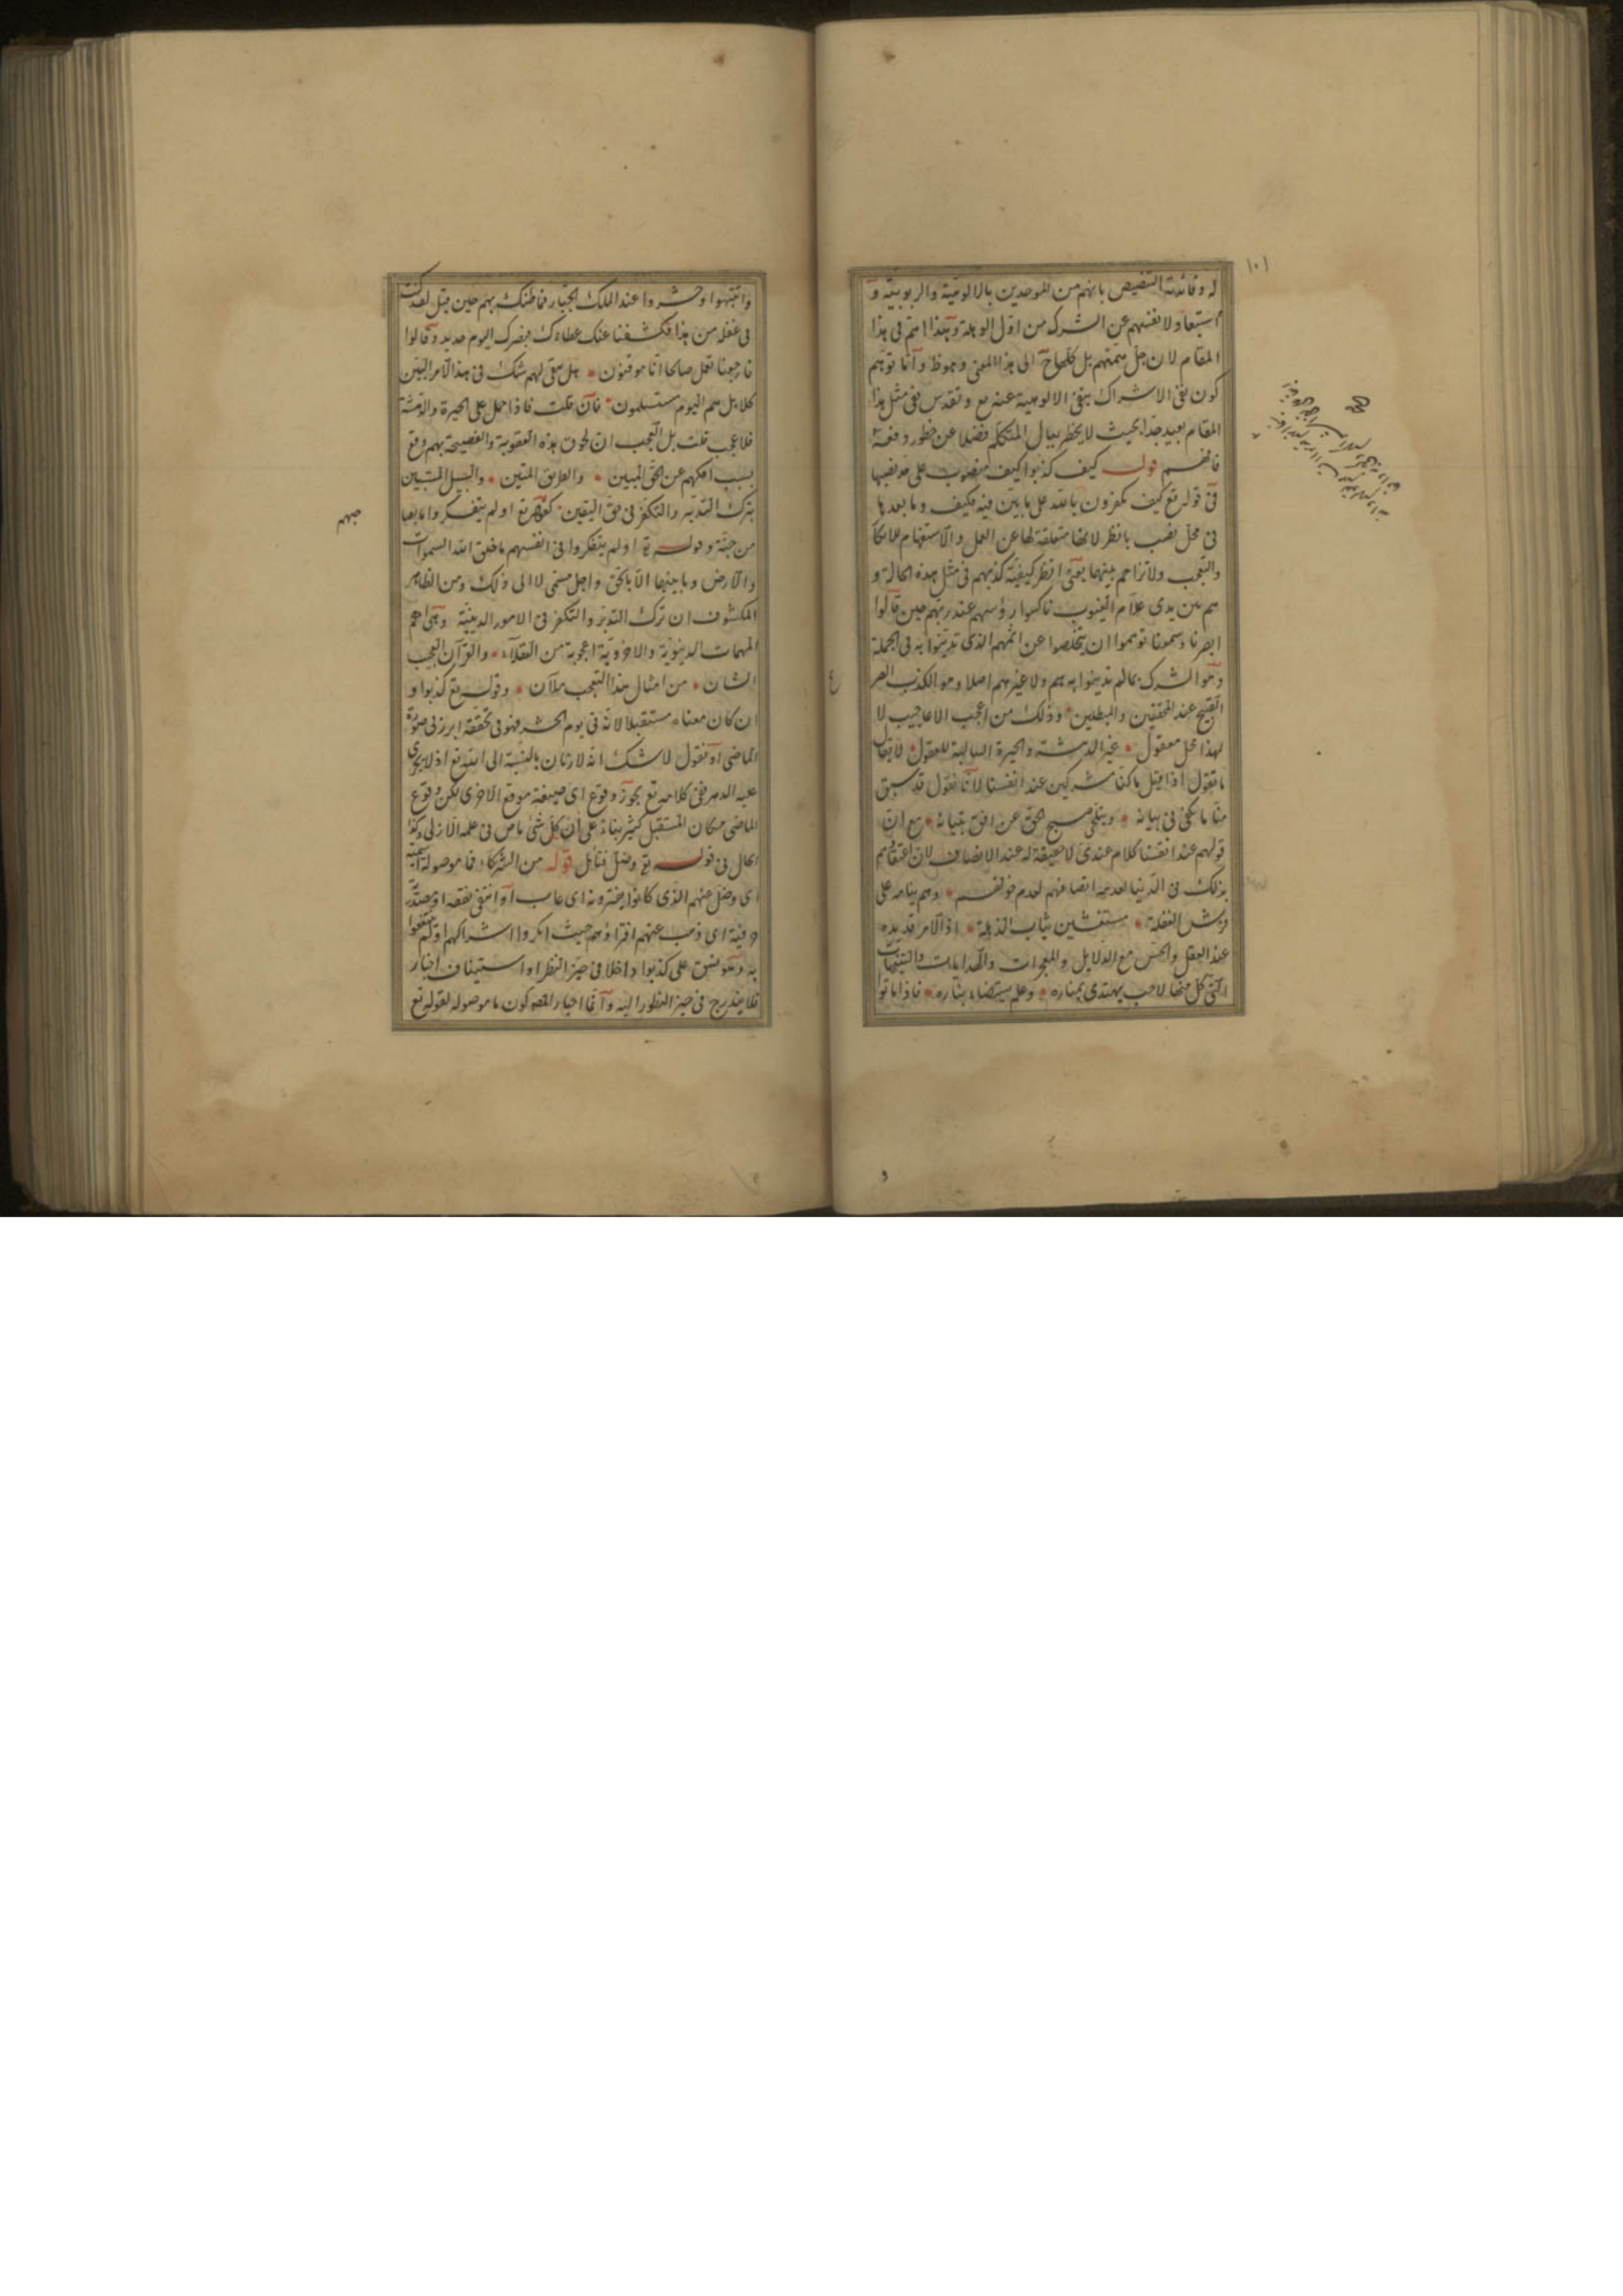 ١٠١
له وفائدته التنصيص بانهم من الموحدين بالالوهية والربوبية و
استبعاد لانفسهم عن الشرك من اول الوهلة وهذا اهتم فى هذا
المقام لان جل همتهم بل كلها الى هذا المعنى واما توهم
كون نفى الاشراك بنفى الالوهية عنه تع وتقدس ففى مثل هذا
المقام بعيد جدا بحيث لا يخطر ببال المتكلم فضلا عن خطور دفعه
فافهم قوله كيف كذبوا كيف منصوب على
فى قوله تع كيف تكفرون بالله على ما بين فيه فكيف وما بعدها
فى محل نصب بانظر لانها متعلقة لها عن العمل والاستفهام
والتعجب ولا تزاحم بينهما يعنى انظر كيفية كذبهم فى مثل هذه الحالة و
هم بين يدى علام الغيوب ناكسوا رؤسهم عند ربهم حين قالوا
ابصرنا وسمعنا توهموا ان يتخلصوا عن اثمهم الذى تدينوا به فى الجملة
وهو الشرك بما لم تدينوا به هم ولا غيرهم اصلا وهو الكذب
القبيح عند المحققين والمبطلين وذلك من اعجب الاعاجيب لا
لهذا محل معقول غير الدهشة والحيرة السالبة للعقول لا يقال
ما تقول اذا قيل ما كنا مشركين عند انفسنا لانا نقول قد سبق
منا ما يكفى فى بيانه صبح الحق عن افق تبيانه مع ان
قولهم عند انفسنا كلام عندى لا حقيقة له عند الانصاف لان اعتقادهم
بذلك فى الدنيا لعدم انصافهم لعدم خوفهم وهم نيام على
فرش الغفلة مستغشين ثياب الذهلة اذ الامر قد بده
عند العقل والحس مع الدلايل والمعجزات والبينات
التى كل منها لاحب يهتدى بمناره وعلم يستضاء بناره فاذا ماتوا
وانتبهوا وحشروا عند الملك الجبار فما ظنك بهم حين قيل لقد كنت
فى غفلة من هذا فكشفنا عنك غطاءك فبصرك اليوم حديد وقالوا
فارجعنا نعمل صالحا انا موقنون هل بقى لهم شك فى هذا الامر البين
كلا بل هم اليوم مستسلمون فان قلت فاذا حمل على الحيرة والدهشة
فلا عجب قلت بل العجب ان لحوق هذه العقوبة والفضيحة بهم وقع
بسبب افكهم عن الحق المبين والطريق المتين والسبيل المستبين
بترك التدبر والتفكر فى حق اليقين كقوله تع اولم يتفكروا ما بصاحبهم
من جنة وقوله تع اولم يتفكروا فى انفسهم ما خلق الله السموات
والارض وما بينهما الا بالحق واجل مسمى لا الى ذلك ومن الظاهر
المكشوف ان ترك التدبر والتفكر فى الامور الدينية وهى اهم
المهمات الدنيوية والاخروية اعجوبة من العقلاء والقرآن العجيب
الشان من امثال هذا التعجب ملآن وقوله تع كذبوا و
ان كان معناه مستقبلا لانه فى يوم الحشر فهو فى تحققه ابرز فى صورة
الماضى او نقول لا شك انه لا زمان بالنسبة الى الله تع اذ لا يجرى
عليه الدهر ففى كلامه تع يجوز وقوع اى صيغة موقع الاخرى لكن وقوع
الماضى مكان المستقبل كثير بناء على ان كل شئ ماض فى علمه الازلى وكذا
الحال فى قوله تع وضل فتأمل قوله من الشركاء فما موصولة اسمية
اى وضل عنهم الذى كانوا يفترونه اى غاب او انتفى نفعه
وفيه اى ذهب عنهم افتراؤهم حيث انكروا اشراكهم او لم ينتفعوا
به وهو نسق على كذبوا داخلا فى حيز النظر او استيناف اخبار
فلا يندرج فى حيز المنظور اليه وانما اختار المص كون ما موصولة لقوله تع